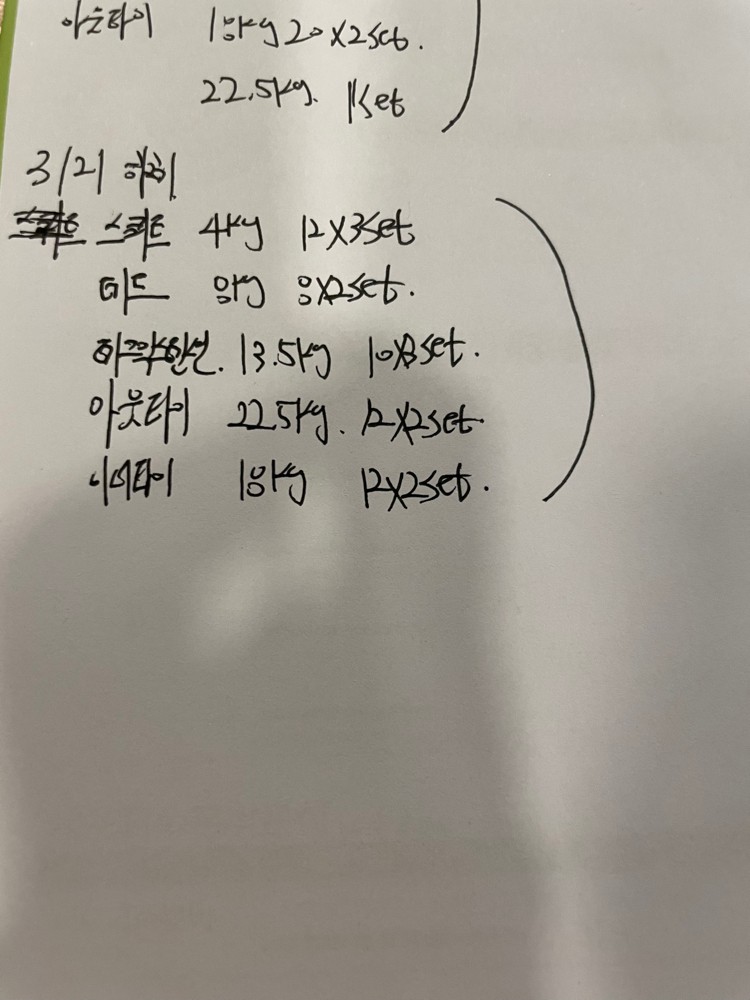 아웃타이 18kg 20x2set.
22.5kg. 1set
3/21 하체
스쿼트 4kg 12x3set
데드 8kg 8x2set.
13.5kg 10x3set.
아웃타이 22.5kg. 12x2set.
이너타이 18kg 12x2set.